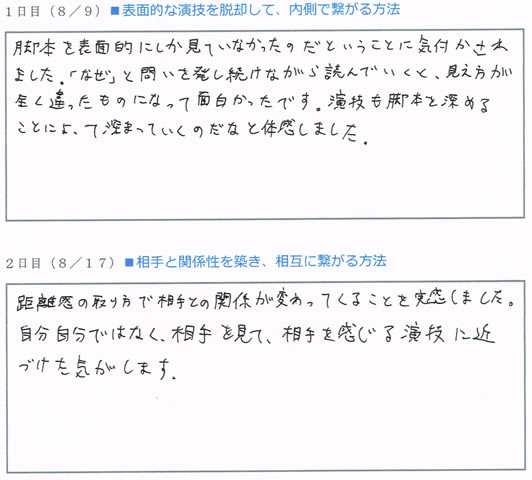 1日目(8/9)■表面的な演技を脱却して、内側で繋がる方法
脚本を表面的にしか見ていなかったのだということに気付かされ
ました。「なぜ」と問いを発し続けながら読んでいくと、見え方が
全く違ったものになって面白かったです。演技も脚本を深める
ことによって深まっていくのだなと体感しました。
2日目(8/17)■相手と関係性を築き、相互に繋がる方法
距離感の取り方で相手との関係が変わってくることを実感しました。
自分自分ではなく、相手を見て、相手を感じる演技に近
づけた気がします。